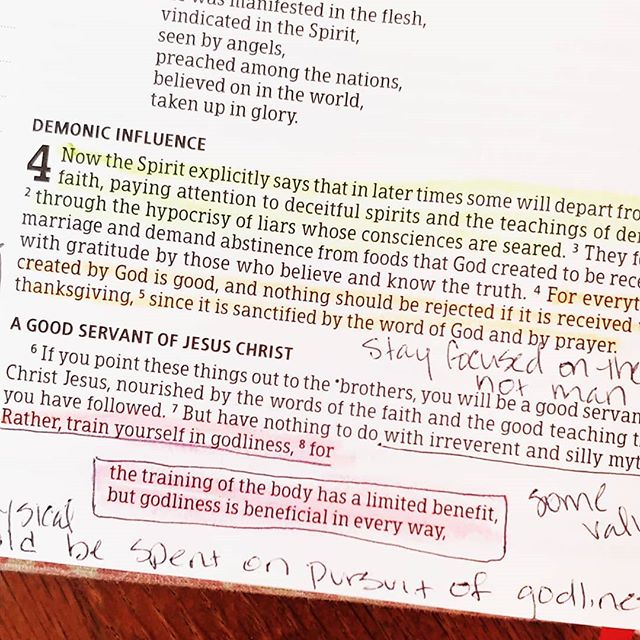 was manifested in the flesh,
vindicated in the Spirit,
seen by angels,
preached among the nations,
believed on in the world,
taken up in glory.
DEMONIC INFLUENCE
4 Now the Spirit explicitly says that in later times some will depart fro
faith, paying attention to deceitful spirits and the teachings of de
2 through the hypocrisy of liars whose consciences are seared. 3 They f
marriage and demand abstinence from foods that God created to be rece
with gratitude by those who believe and know the truth. 4 For everyt
created by God is good, and nothing should be rejected if it is received
thanksgiving, 5 since it is sanctified by the word of God and by prayer.
stay focused on the
not man
A GOOD SERVANT OF JESUS CHRIST
6 If you point these things out to the •brothers, you will be a good servan
Christ Jesus, nourished by the words of the faith and the good teaching t
you have followed. 7 But have nothing to do with irreverent and silly myt
Rather, train yourself in godliness, 8 for
the training of the body has a limited benefit,
but godliness is beneficial in every way,
some
val
ysical
ld be spent on pursuit of godline